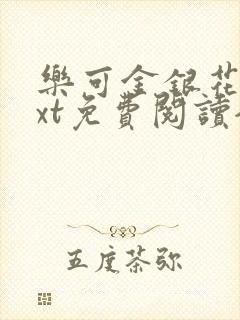 樂可金銀花
xt免費閱讀
五度茶弥